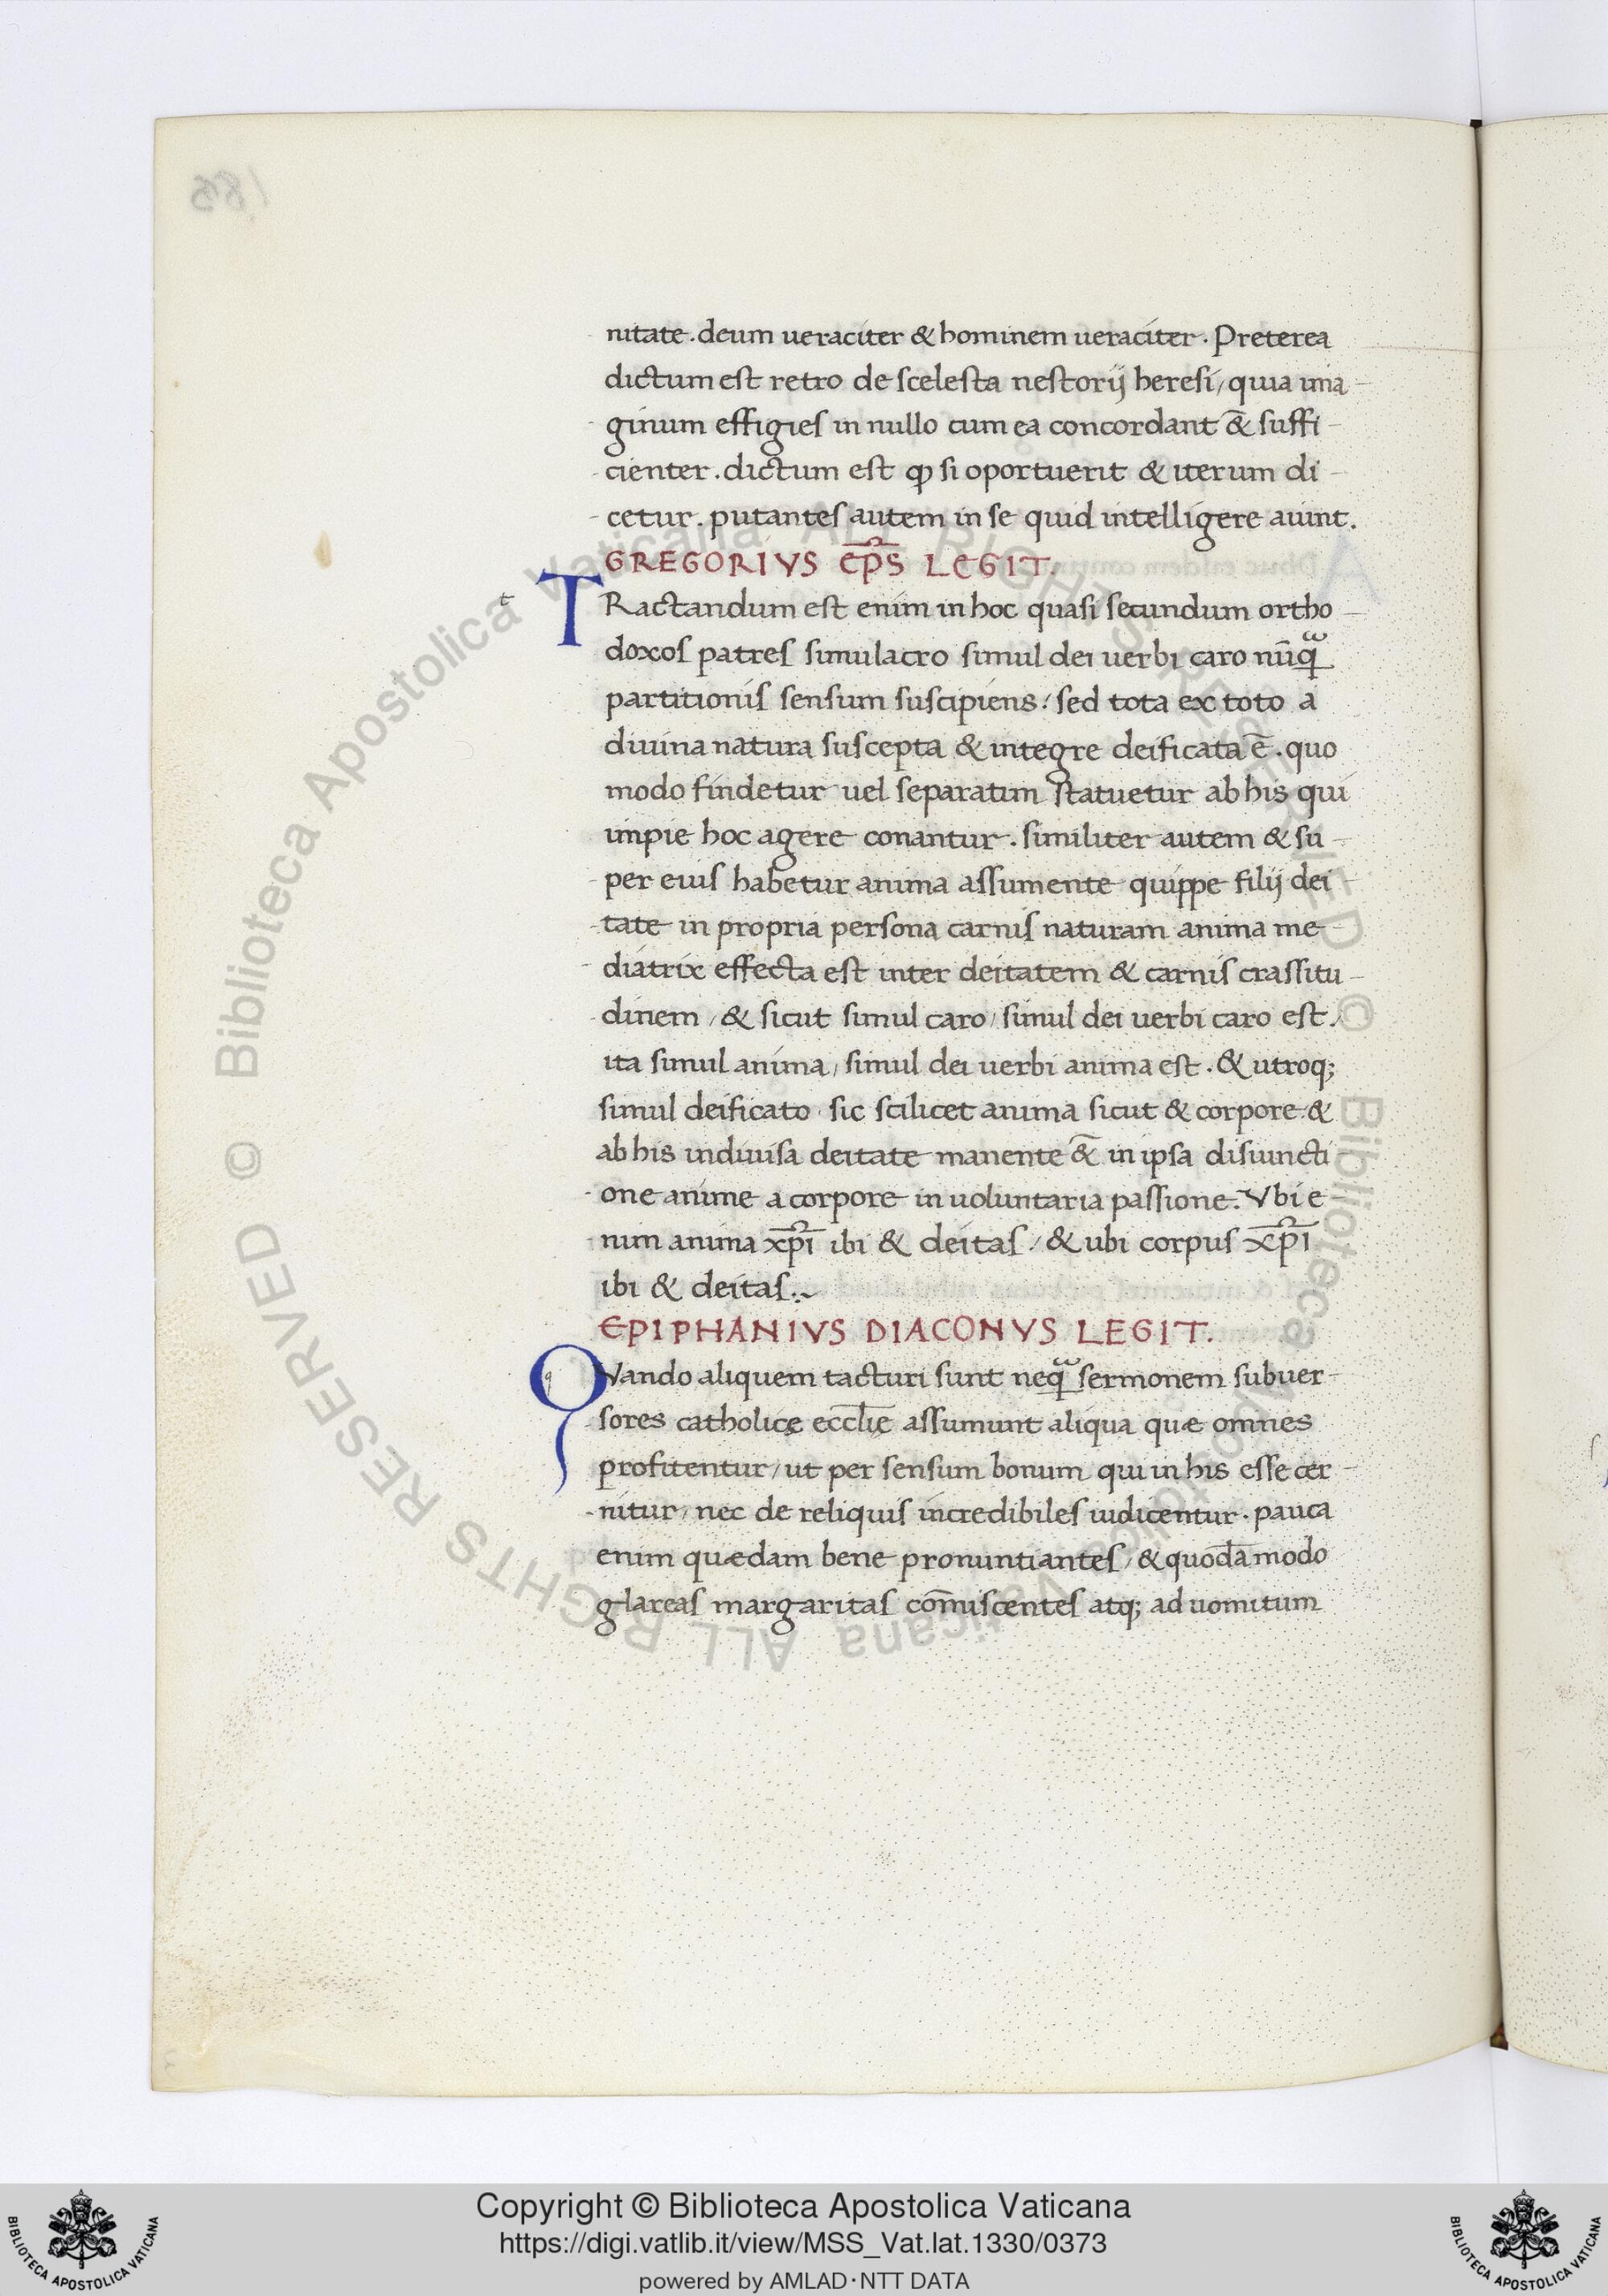 nitate. deum ueraciter & hominem ueraciter. Preterea
dictum est retro de scelesta nestorij heresi, quia ima
ginum effigies in nullo cum ea concordant &̄ suffi
cienter. dictum est ꝙ si oportuerit & iterum di
cetur. putantes autem in se quid intelligere aiunt.
GREGORIVS EP̄S LEGIT.
t
TRactandum est enim in hoc quasi secundum ortho
doxos patres simulacro simul dei uerbi caro nūqᷓ
partitionis sensum suscipiens: sed tota ex toto a
diuina natura suscepta & integre deificata ē. quo
modo findetur uel separatim statuetur ab his qui
impie hoc agere conantur. similiter autem & su
per eius habetur anima assumente quippe filij dei
tate in propria persona carnis naturam anima me
diatrix effecta est inter deitatem & carnis crassitu
dinem, & sicut simul caro, simul dei uerbi caro est.
ita simul anima, simul dei uerbi anima est. & utroq;
simul deificato. sic scilicet anima sicut & corpore. &
ab his indiuisa deitate manente &̄ in ipsa disiuncti
one anime a corpore in uoluntaria passione. Vbi e
nim anima xp̄i ibi & deitas, & ubi corpus xp̄i
ibi & deitas.
EPIPHANIVS DIACONVS LEGIT.
q
QVando aliquem tacturi sunt neqᷓ sermonem subuer
sores catholicę eccl̄ię assumunt aliqua quæ omnes
profitentur, ut per sensum bonum qui in his esse cer
nitur, nec de reliquis incredibiles iudicentur. pauca
enim quædam bene pronuntiantes, & quodāmodo
glareas margaritas com̄iscentes atq; ad uomitum
© Biblioteca Apostolica Vaticana ALL RIGHTS RESERVED © Biblioteca Apostolica Vaticana ALL RIGHTS RESERVED
Copyright © Biblioteca Apostolica Vaticana
https://digi.vatlib.it/view/MSS_Vat.lat.1330/0373
powered by AMLAD · NTT DATA
BIBLIOTECA APOSTOLICA VATICANA
BIBLIOTECA APOSTOLICA VATICANA